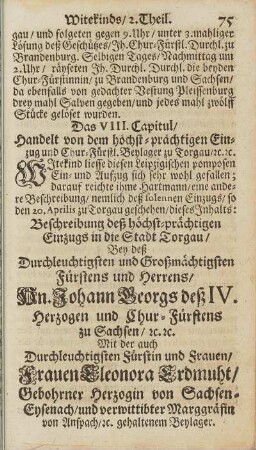 Witekinds / 2. Theil. 75
gau / und folgeten gegen 9. Uhr / unter 3. mahliger
Lösung deß Geschützes / Ih. Chur-Fürstl. Durchl. zu
Brandenburg. Selbigen Tages / Nachmittag um
2. Uhr / räyseten Ih. Durchl. Durchl. die beyden
Chur-Fürstinnin / zu Brandenburg und Sachsen /
da ebenfalls von gedachter Vestung Pleissenburg
drey mahl Salven gegeben / und jedes mahl zwölff
Stücke gelöset wurden.
Das VIII. Capitul /
Handelt von dem höchst-prächtigen Ein-
zug und Chur-Fürstl. Beylager zu Torgau / ꝛc. ꝛc.
WItekind liesse diesen Leipzigischen pomposen
Ein- und Auffzug sich sehr wohl gefallen;
darauf reichte ihme Hartmann / eine ande-
re Beschreibung / nemlich deß solennen Einzugs / so
den 20. Aprilis zu Torgau geschehen / dieses Inhalts:
Beschreibung deß höchst-prächtigen
Einzugs in die Stadt Torgau /
Bey deß
Durchleuchtigsten und Großmächtigsten
Fürstens und Herrens /
Hn. Johann Georgs deß IV.
Herzogen und Chur-Fürstens
zu Sachsen / ꝛc. ꝛc.
Mit der auch
Durchleuchtigsten Fürstin und Frauen /
Frauen Eleonora Erdmuht /
Gebohrner Herzogin von Sachsen-
Eysenach / und verwittibter Marggräfin
von Anspach / ꝛc. gehaltenem Beylager.